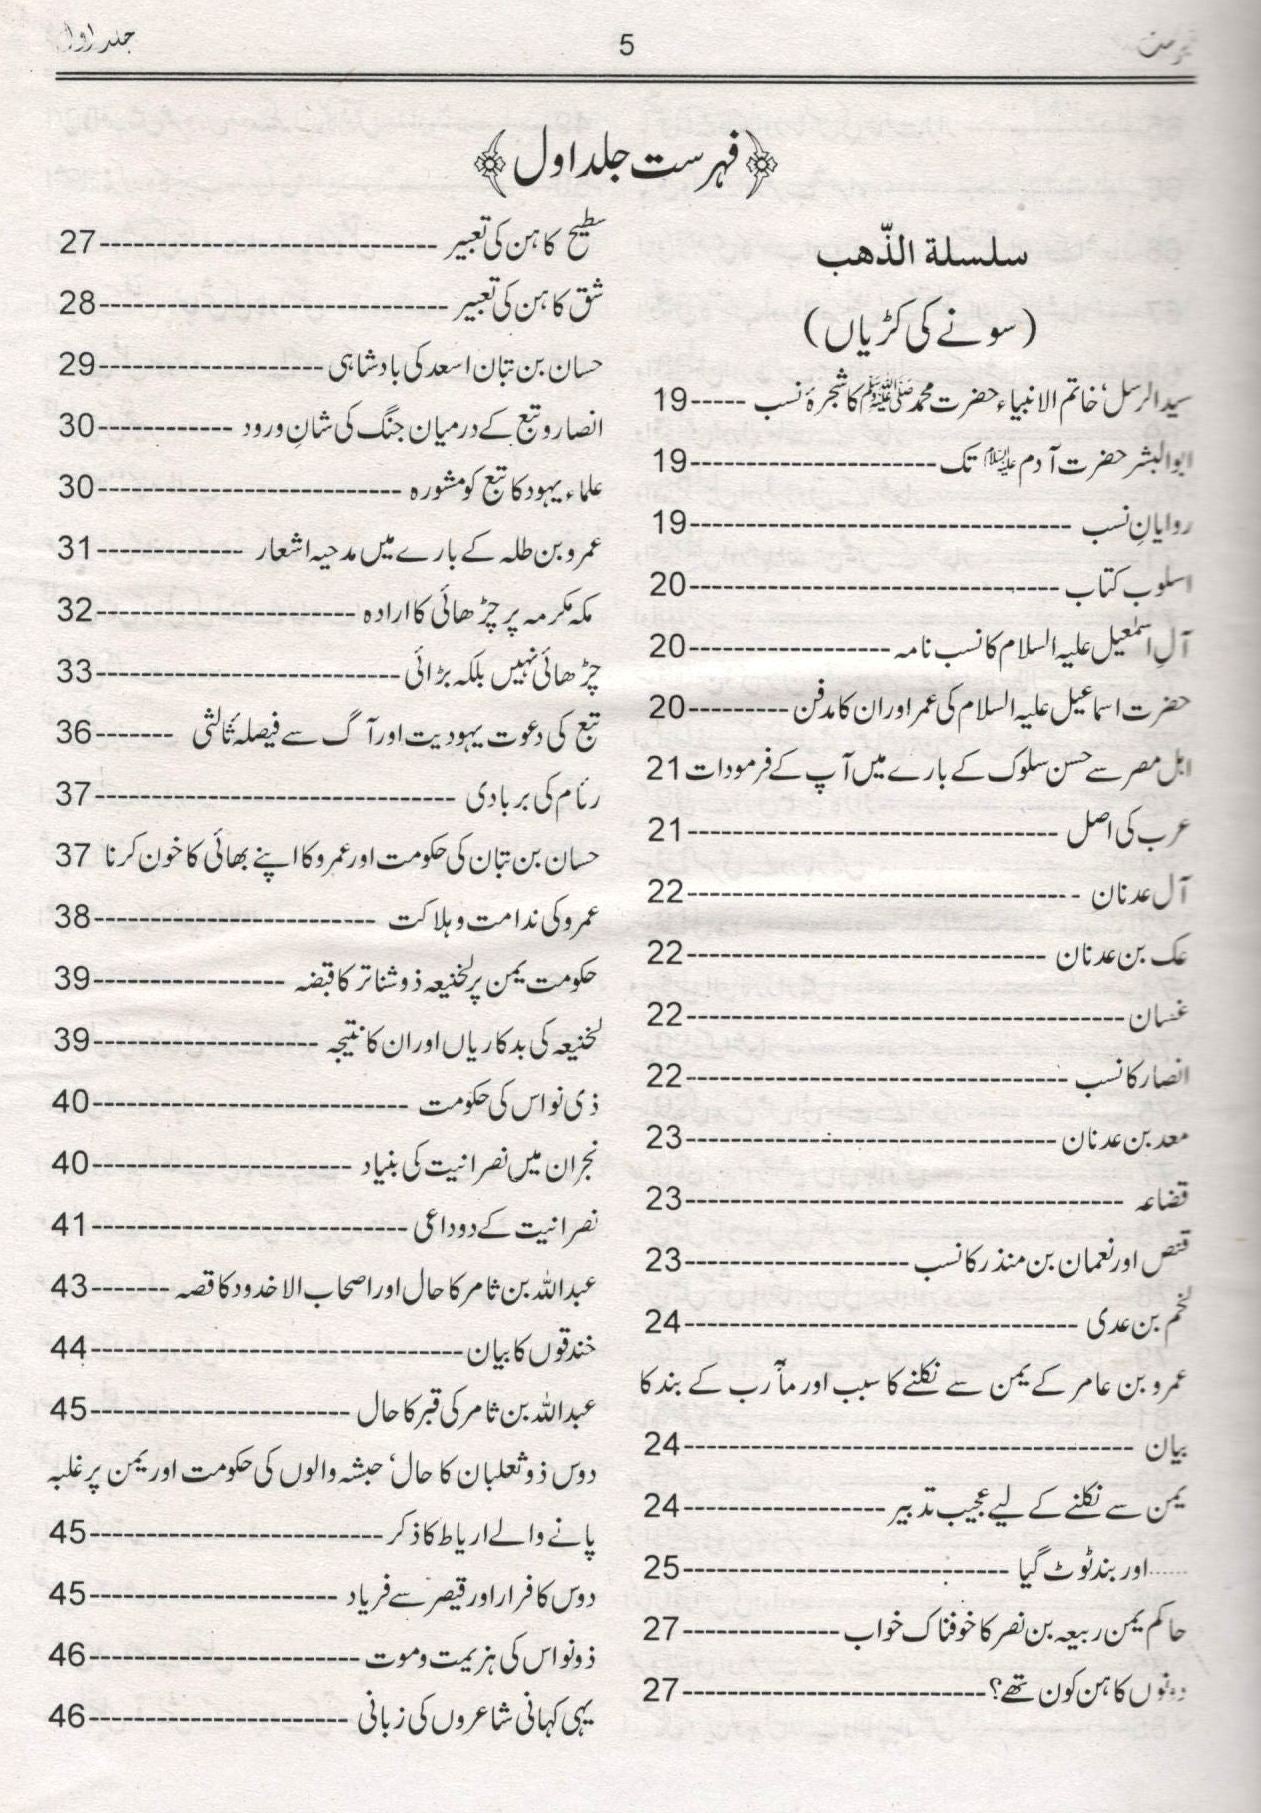 فہرست 5 جلد اول
﴿فہرست جلد اول﴾
سلسلة الذّهب
(سونے کی کڑیاں)
سید الرسل، خاتم الانبیاء حضرت محمد ﷺ کا شجرۂ نسب -----19
ابوالبشر حضرت آدم علیہ السلام تک-----------------------19
روایانِ نسب ----------------------------------19
اسلوب کتاب ---------------------------------20
آلِ اسمٰعیل علیہ السلام کا نسب نامہ ------------------20
حضرت اسماعیل علیہ السلام کی عمر اور ان کا مدفن ---------20
اہل مصر سے حسن سلوک کے بارے میں آپ کے فرمودات 21
عرب کی اصل ---------------------------------21
آل عدنان ----------------------------------22
عک بن عدنان --------------------------------22
غسان---------------------------------------22
انصار کا نسب ---------------------------------22
معد بن عدنان ---------------------------------23
قضاعہ ---------------------------------------23
قنص اور نعمان بن منذر کا نسب --------------------23
لخم بن عدی -----------------------------------24
عمرو بن عامر کے یمن سے نکلنے کا سبب اور مأرب کے بند کا
بیان ----------------------------------------24
یمن سے نکلنے کے لیے عجیب تدبیر ------------------24
......اور بند ٹوٹ گیا -----------------------------25
حاکم یمن ربیعہ بن نصر کا خوفناک خواب --------------27
دونوں کاہن کون تھے؟---------------------------27
سطیح کاہن کی تعبیر ------------------------------27
شق کاہن کی تعبیر -------------------------------28
حسان بن تبان اسعد کی بادشاہی--------------------29
انصار و تبع کے درمیان جنگ کی شانِ ورود ------------30
علماء یہود کا تبع کو مشورہ ---------------------------30
عمرو بن طلہ کے بارے میں مدحیہ اشعار -------------31
مکہ مکرمہ پر چڑھائی کا ارادہ -----------------------32
چڑھائی نہیں بلکہ بڑائی---------------------------33
تبع کی دعوت یہودیت اور آگ سے فیصلۂ ثالثی -------36
رئام کی بربادی --------------------------------37
حسان بن تبان کی حکومت اور عمرو کا اپنے بھائی کا خون کرنا 37
عمرو کی ندامت و ہلاکت -------------------------38
حکومت یمن پر لخنیعہ ذوشناتر کا قبضہ -----------------39
لخنیعہ کی بدکاریاں اور ان کا نتیجہ --------------------39
ذی نواس کی حکومت ----------------------------40
نجران میں نصرانیت کی بنیاد -----------------------40
نصرانیت کے دو داعی ----------------------------41
عبداللہ بن ثامر کا حال اور اصحاب الاخدود کا قصہ -------43
خندقوں کا بیان---------------------------------44
عبداللہ بن ثامر کی قبر کا حال -----------------------45
دوس ذوثعلبان کا حال، حبشہ والوں کی حکومت اور یمن پر غلبہ
پانے والے ارياط کا ذکر --------------------------45
دوس کا فرار اور قیصر سے فریاد ----------------------45
ذونواس کی ہزیمت و موت ------------------------46
یہی کہانی شاعروں کی زبانی -----------------------46